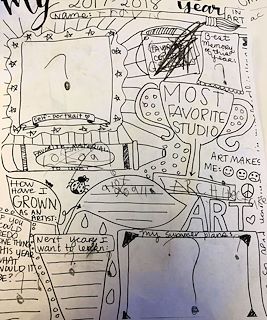 My 2017-2018 Year
IN ART
Name:
FAVORITE
Best
memory of
this year:
MOST
FAVORITE
STUDIO
Self-portrait
FAVORITE MATERIAL
ART MAKES
ME:
HOW
HAVE
I
GROWN
AS AN
ARTIST:
ART
IF YOU
COULD
REDO
ONE THING
THIS YEAR
WHAT
WOULD IT
BE?
Next year I
want to learn:
My summer plans: